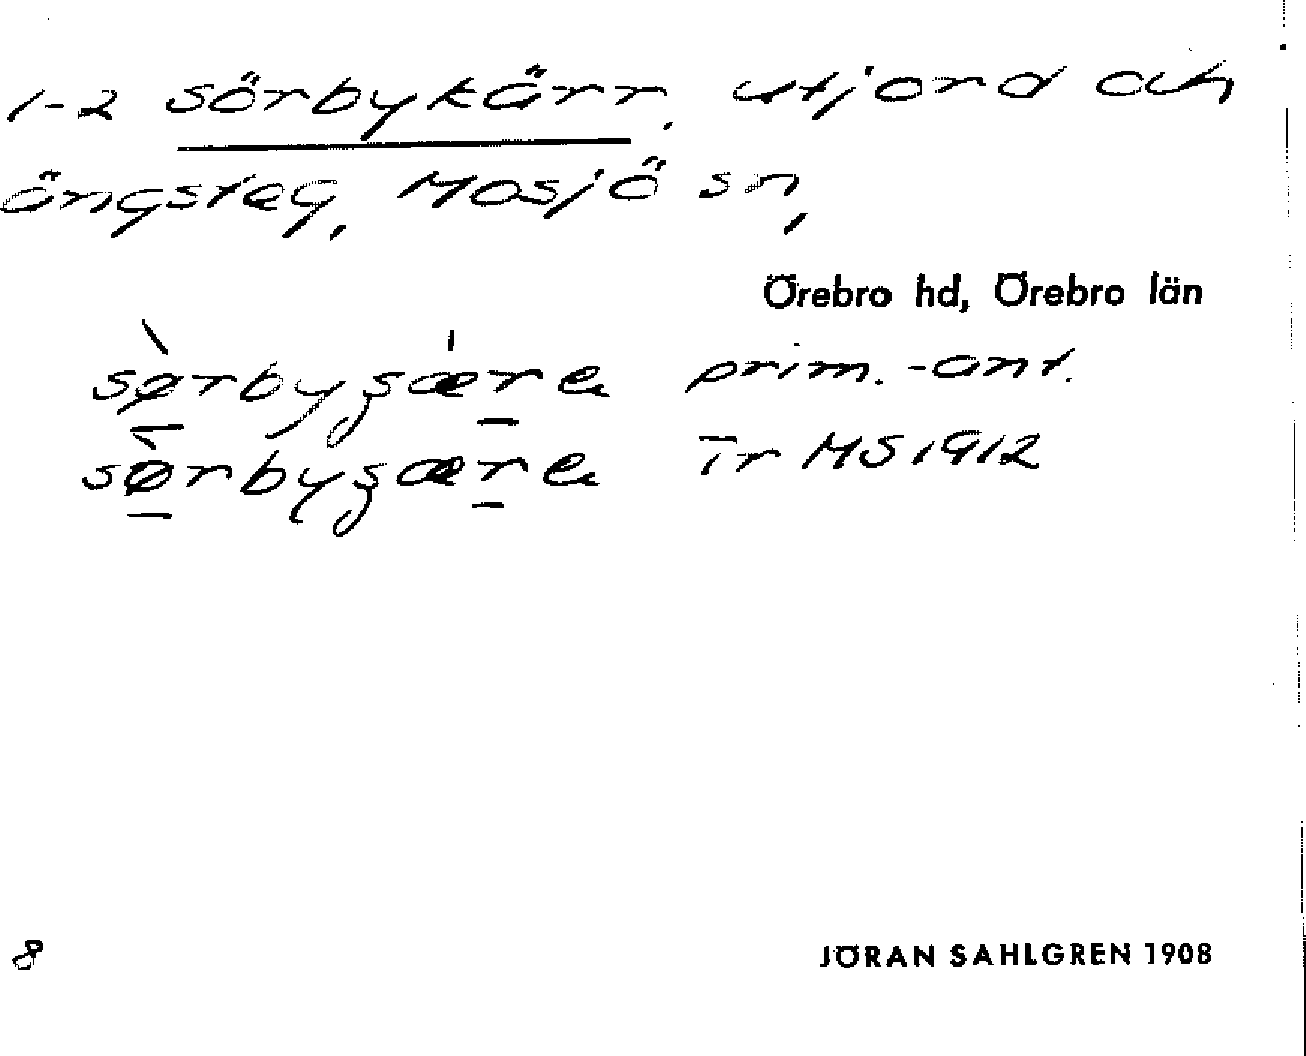 1-2 Sörbykärr, utjord och
ängsteg, Mosjö sn,
Örebro hd, Örebro län
sø̀rbyʂæ̍re prim.-ant.
sø̀rbyʂære Tr MS 1912
8
JÖRAN SAHLGREN 1908